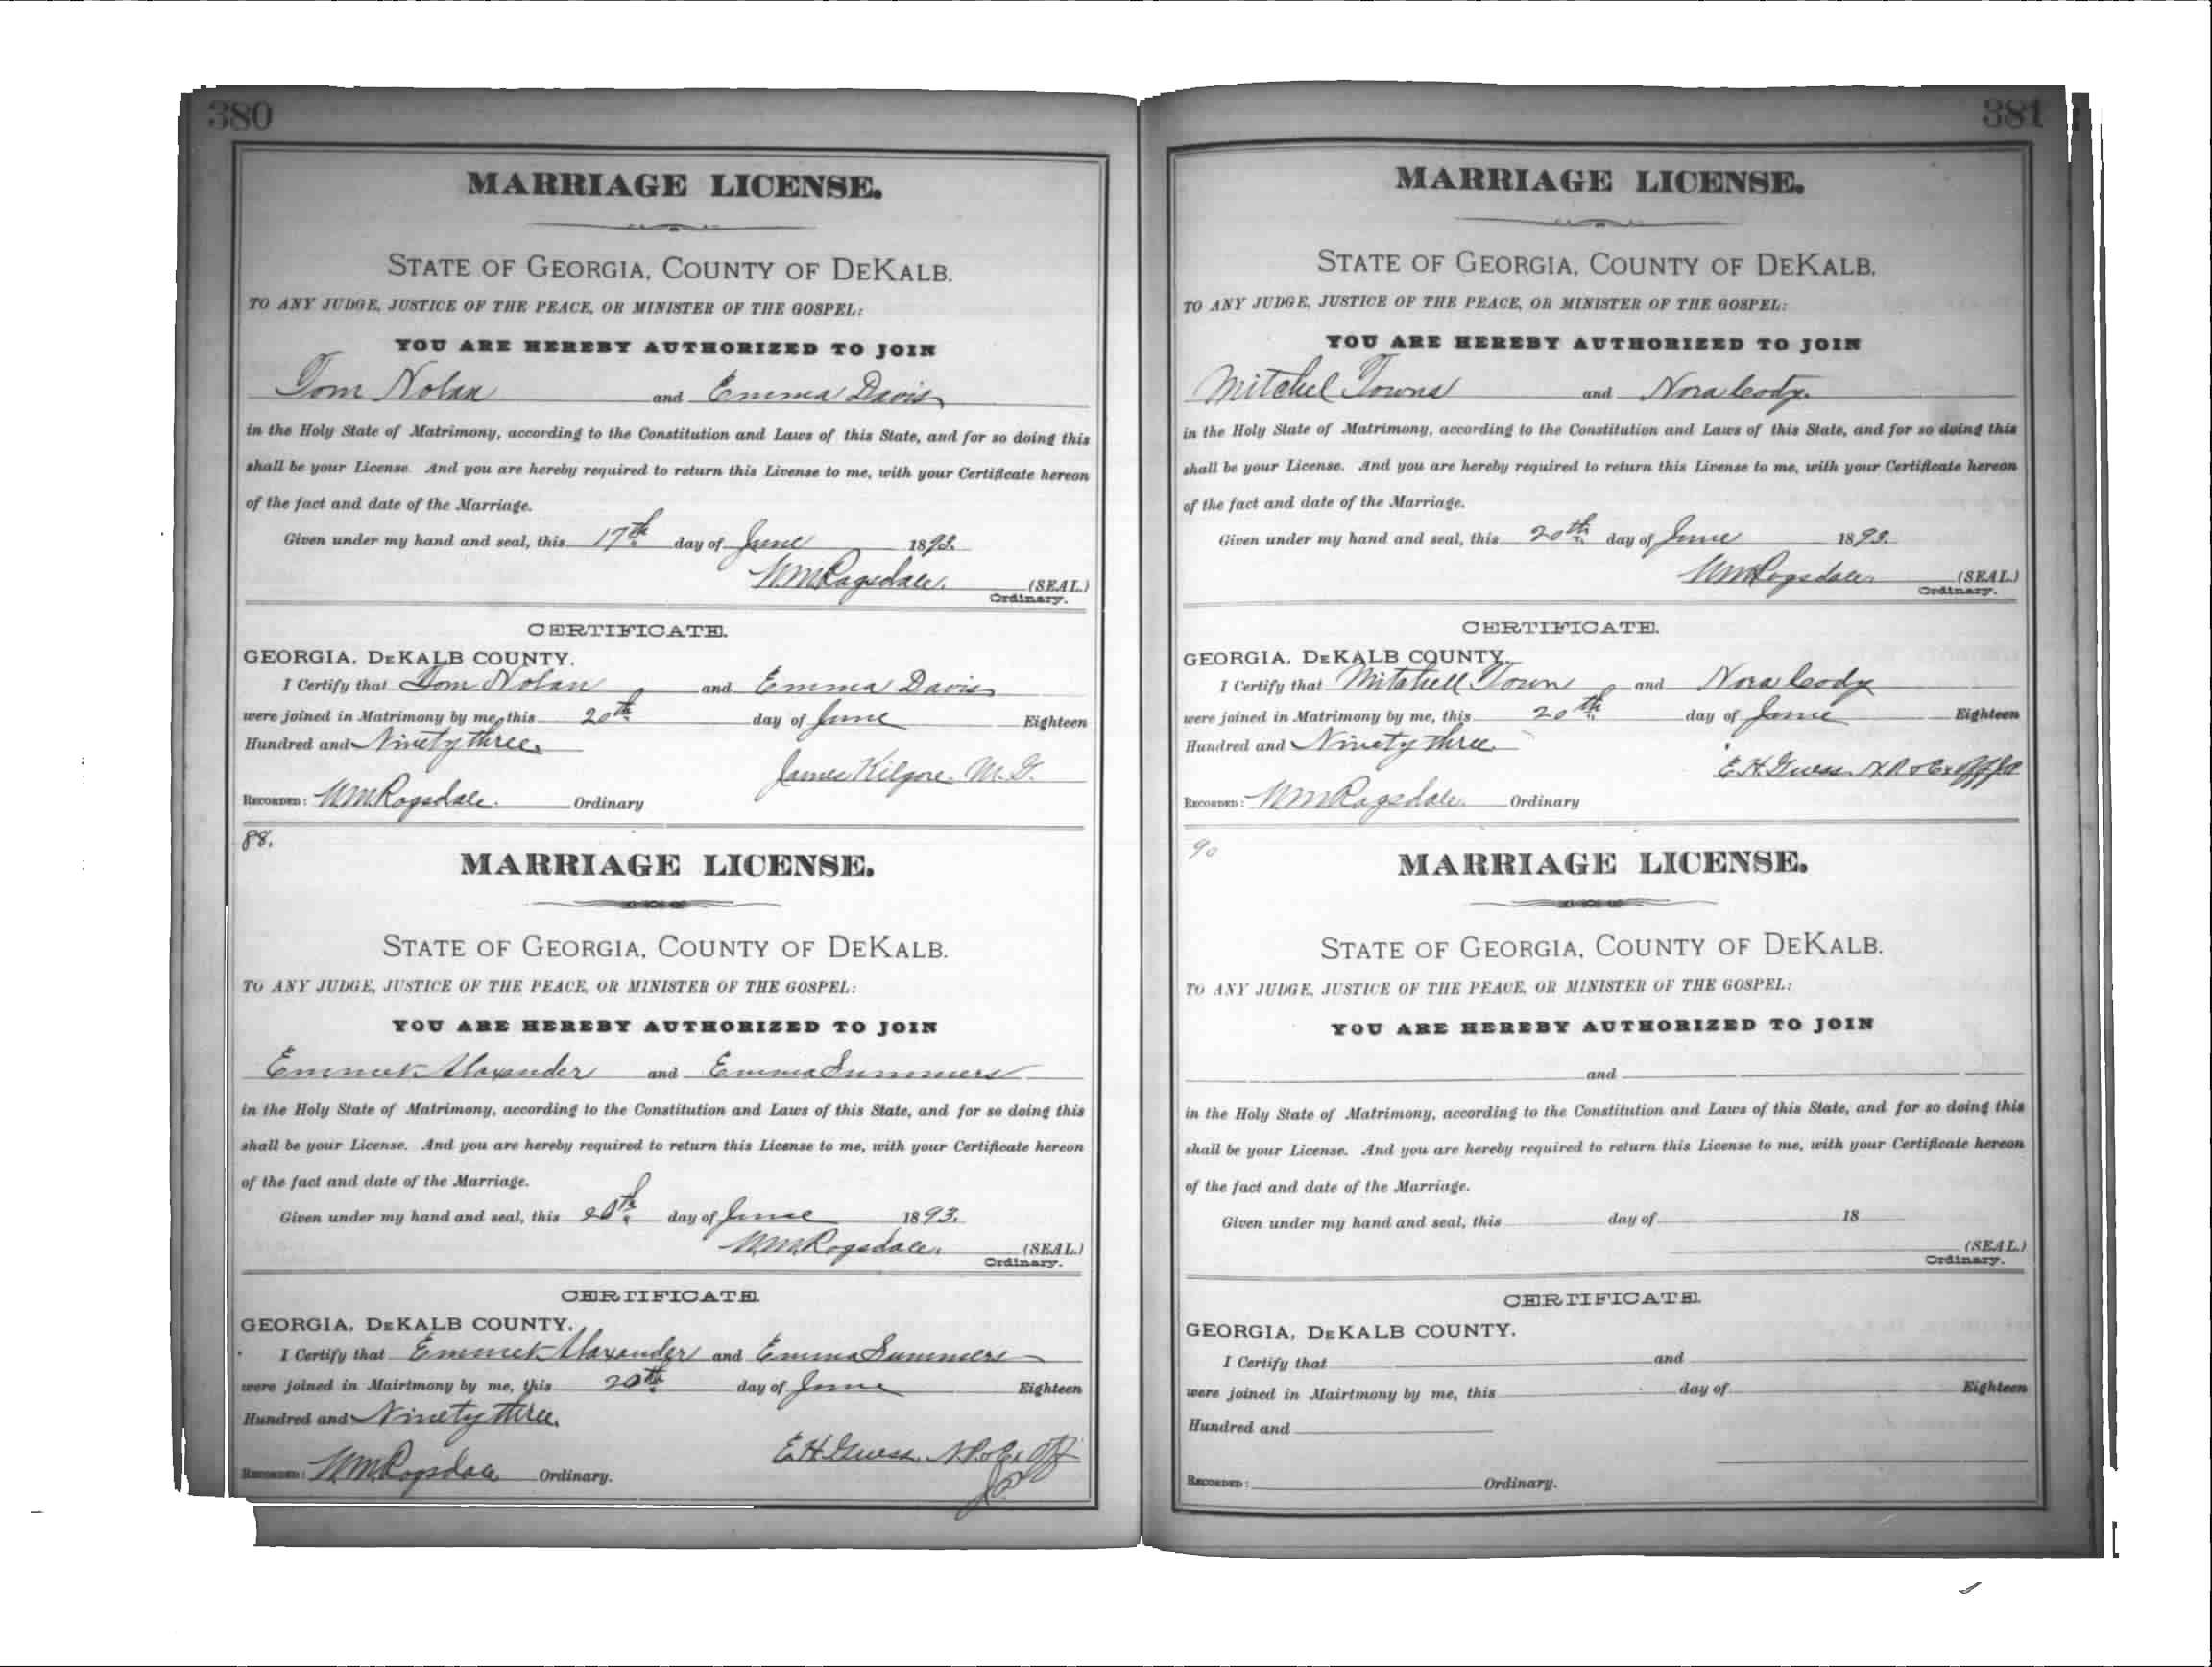 380
MARRIAGE LICENSE.
STATE OF GEORGIA, COUNTY OF DEKALB.
TO ANY JUDGE, JUSTICE OF THE PEACE, OR MINISTER OF THE GOSPEL:
YOU ARE HEREBY AUTHORIZED TO JOIN
Tom Nolan and Emma Davis
in the Holy State of Matrimony, according to the Constitution and Laws of this State, and for so doing this
shall be your License. And you are hereby required to return this License to me, with your Certificate hereon
of the fact and date of the Marriage.
Given under my hand and seal, this 17th day of June 1893.
WM Ragsdale. (SEAL)
Ordinary.
CERTIFICATE.
GEORGIA, DEKALB COUNTY.
I Certify that Tom Nolan and Emma Davis
were joined in Matrimony by me, this 20th day of June Eighteen
Hundred and Ninety three.
James Kilgore M.G.
RECORDED: WM Ragsdale. Ordinary
88.
MARRIAGE LICENSE.
STATE OF GEORGIA, COUNTY OF DEKALB.
TO ANY JUDGE, JUSTICE OF THE PEACE, OR MINISTER OF THE GOSPEL:
YOU ARE HEREBY AUTHORIZED TO JOIN
Emmet Alexander and Emma Summers
in the Holy State of Matrimony, according to the Constitution and Laws of this State, and for so doing this
shall be your License. And you are hereby required to return this License to me, with your Certificate hereon
of the fact and date of the Marriage.
Given under my hand and seal, this 20th day of June 1893.
WM Ragsdale. (SEAL)
Ordinary.
CERTIFICATE.
GEORGIA, DEKALB COUNTY.
I Certify that Emmet Alexander and Emma Summers
were joined in Mairtmony by me, this 20th day of June Eighteen
Hundred and Ninety three.
E.H. Guess. N.P. & Ex Off
JP
RECORDED: WM Ragsdale Ordinary.
381
MARRIAGE LICENSE.
STATE OF GEORGIA, COUNTY OF DEKALB.
TO ANY JUDGE, JUSTICE OF THE PEACE, OR MINISTER OF THE GOSPEL:
YOU ARE HEREBY AUTHORIZED TO JOIN
Mitchel Towns and Nora Cody.
in the Holy State of Matrimony, according to the Constitution and Laws of this State, and for so doing this
shall be your License. And you are hereby required to return this License to me, with your Certificate hereon
of the fact and date of the Marriage.
Given under my hand and seal, this 20th day of June 1893.
WM Ragsdale. (SEAL)
Ordinary.
CERTIFICATE.
GEORGIA, DEKALB COUNTY.
I Certify that Mitchell Town and Nora Cody
were joined in Matrimony by me, this 20th day of June Eighteen
Hundred and Ninety three.
E.H. Guess. N.P. & Ex Off JP
RECORDED: WM Ragsdale. Ordinary
90
MARRIAGE LICENSE.
STATE OF GEORGIA, COUNTY OF DEKALB.
TO ANY JUDGE, JUSTICE OF THE PEACE, OR MINISTER OF THE GOSPEL:
YOU ARE HEREBY AUTHORIZED TO JOIN
and
in the Holy State of Matrimony, according to the Constitution and Laws of this State, and for so doing this
shall be your License. And you are hereby required to return this License to me, with your Certificate hereon
of the fact and date of the Marriage.
Given under my hand and seal, this day of 18
(SEAL)
Ordinary.
CERTIFICATE.
GEORGIA, DEKALB COUNTY.
I Certify that and
were joined in Mairtmony by me, this day of Eighteen
Hundred and
RECORDED: Ordinary.